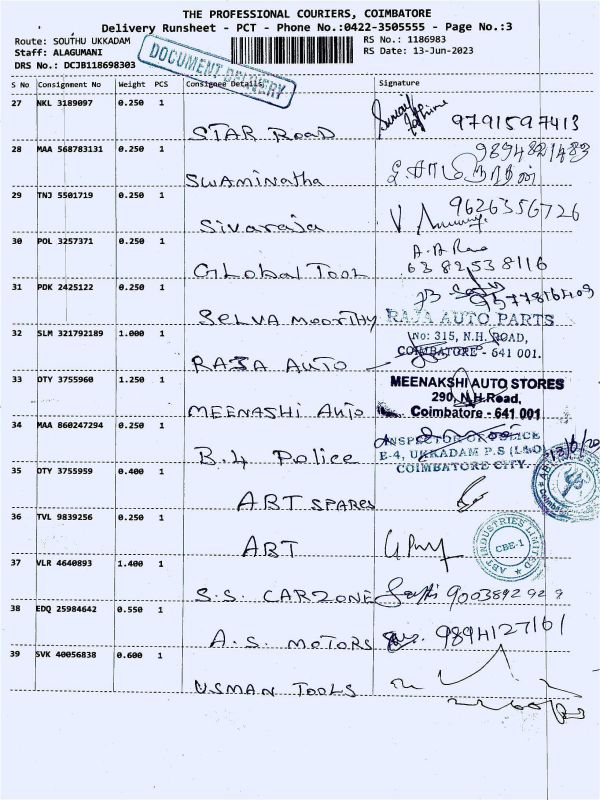 THE PROFESSIONAL COURIERS, COIMBATORE
Delivery Runsheet - PCT - Phone No.:0422-3505555 - Page No.:3
Route: SOUTHU UKKADAM
Staff: ALAGUMANI
DRS No.: DCJB118698303
DOCUMENT DELIVERY
RS No.: 1186983
RS Date: 13-Jun-2023
S No Consignment No Weight PCS Consignee Details Signature
27 NKL 3189097 0.250 1
STAR ROAD 9791597413
28 MAA 568783131 0.250 1
Swaminatha
29 TNJ 5501719 0.250 1
Sivaraja 9626356726
30 POL 3257371 0.250 1
GLobal TOOL 6382538116
31 PDK 2425122 0.250 1
SELVA MOORTHY
32 SLM 321792189 1.000 1
RAJA AUTO
RAJA AUTO PARTS
No: 315, N.H. ROAD,
COIMBATORE - 641 001.
33 OTY 3755960 1.250 1
MEENASHI AUTO
MEENAKSHI AUTO STORES
290, N.H.Road,
Coimbatore - 641 001
34 MAA 860247294 0.250 1
B.4 Police
INSPECTOR OF POLICE
E-4, UKKADAM P.S (L&O)
COIMBATORE CITY.
35 OTY 3755959 0.400 1
ABT SPARES
36 TVL 9839256 0.250 1
ABT
ABT INDUSTRIES LIMITED
CBE-1
37 VLR 4640893 1.400 1
S.S. CARZONE 9003892929
38 EDQ 25984642 0.550 1
A.S. MOTORS 9894127161
39 SVK 40056838 0.600 1
USMAN TOOLS